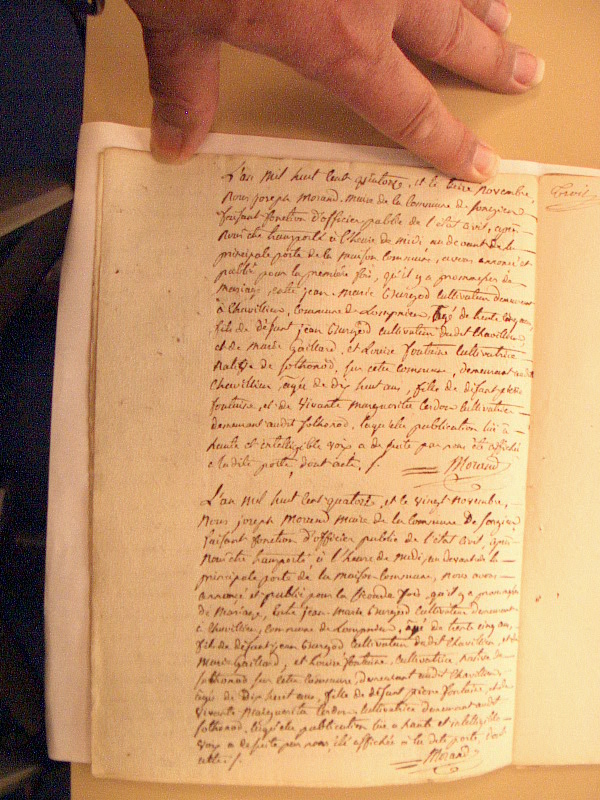 L'an mil huit cent quatorze, et le treize novembre,
Nous joseph Morand, maire de la Commune de Songieu
faisant fonction d'officier public de l'état civil, après
principale porte de la maison commune, avons annoncé et
publié pour la première fois, qu'il y a promesses de
Mariage, entre jean-Marie cultivateur demeurant
à Chavillieu, Commune de Lompnieu, âgé de trente cinq ans,
fils de défunt jean cultivateur dudit Chavillieu
et de Marie Gaillard, et Louise fontaine Cultivatrice
Native de Sothonod, sur cette Commune, demeurant audit
Chavillieu agée de Dix huit ans, fille de défunt pierre
fontaine, et de Vivante Marguerite Cerdon Cultivatrice
demeurant audit Sothonod, laquelle publication lue à
haute et intelligible voix a de suite par nous été affichée
à ladite porte, dont acte,
Morand
L'an mil huit Cent quatorze, et le vingt novembre,
Nous joseph Morand maire de la Commune de Songieu
faisant fonction d'officier public de l'état civil, après
à l'heure de Midi, au devant de la
principale porte de la Maison Commune, Nous avons
annoncé et publié pour la seconde fois, qu'il y a promesses
de Mariage, entre jean-Marie Cultivateur demeurant
à Chavillieu, commune de Lompnieu, âgé de trente cinq ans,
fils de défunt jean Cultivateur dudit Chavillieu, et de
Marie Gaillard, et Louise fontaine, Cultivatrice, native de
Sothonod sur cette Commune, demeurant audit Chavillieu
agée de Dix huit ans, fille de défunt pierre fontaine, et de
vivante Marguerite Cerdon Cultivatrice demeurant audit
Sothonod, laquelle publication lue à haute et intelligible
voix a de suite par nous, été affichée à la dite porte, dont
acte
Morand